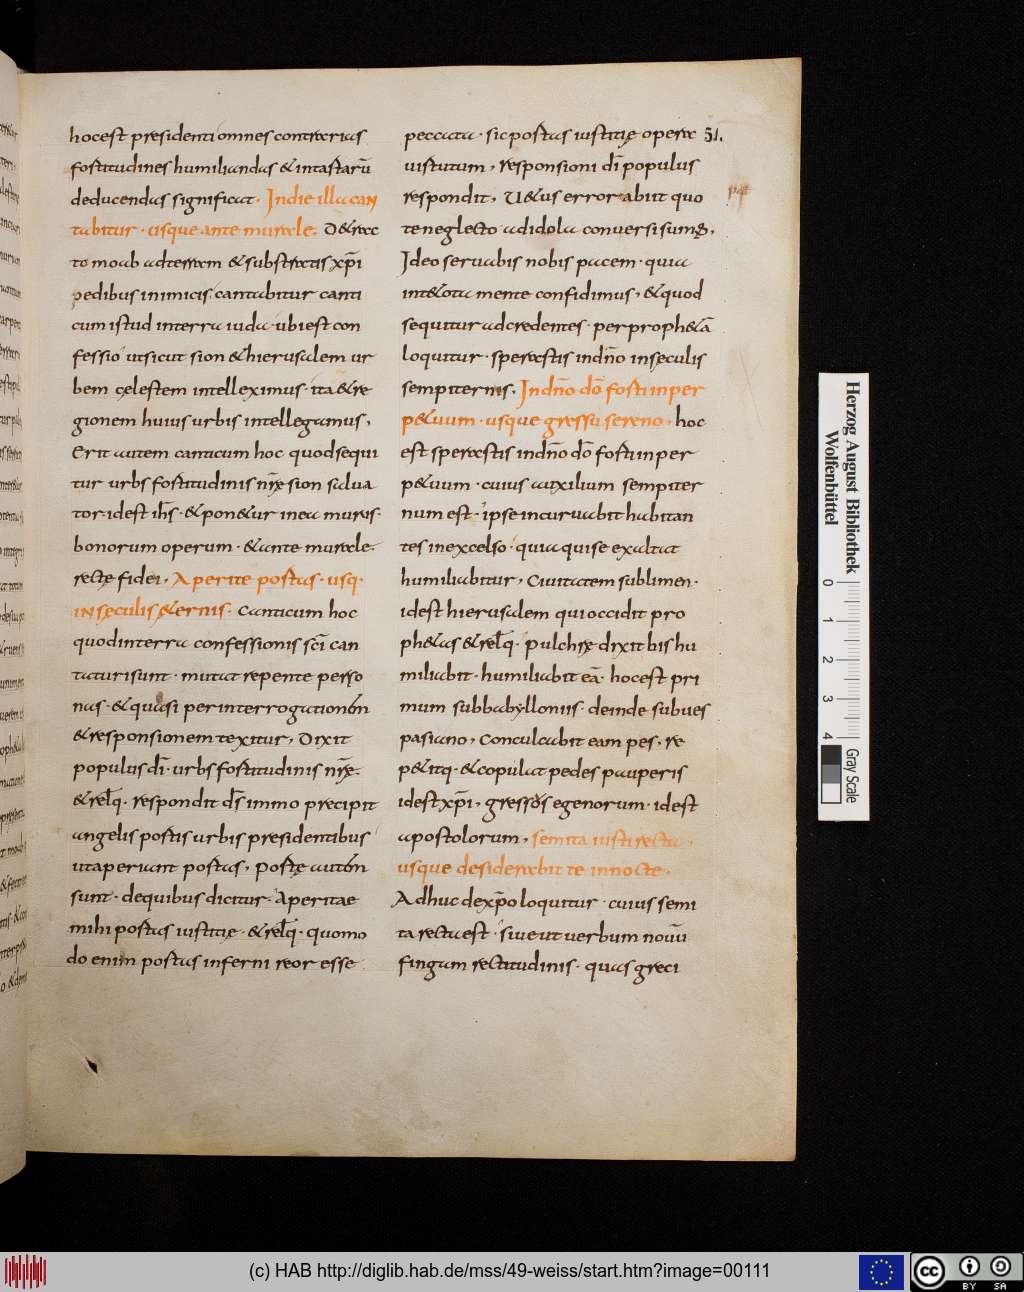 hoc est presidenti omnes contrarias
fortitudines humiliandas & intartarū
deducendas significat. In die illa can
tabitur. usque ante murale. D&rac
to moab ad terram & substratis xp̄i
pedibus inimicis. cantabitur canti
cum istud in terra iuda ubi est con
fessio ut sicut sion & hierusalem ur
bem cęlestem intelleximus. ita & re
gionem huius urbis intellegamus,
Erit autem canticum hoc quod sequi
tur urbs fortitudinis nrę̄ sion salua
tor. id est ih̄s. & pon&ur in ea murus.
bonorum operum. & ante murale.
rectę fidei, Aperite portas. usq.
in sęculis &ernis. Canticum hoc
quod in terra confessionis sc̄i can
taturi sunt. mutat repente perso
nas. & quasi per interrogationem
& responsionem texitur, Dixit
populus dī. urbs fortitudinis nrę̄.
& relq̄. respondit d̄s immo precipit
angelis portis urbis presidentibus
ut aperiant portas, Portę autem
sunt. de quibus dicitur. Aperitae
mihi portas iustitię. & relq̄. quomo
do enim portas inferni reor esse
peccata. sic portas iustitię opera
51.
uirtutum, Responsioni dī populus
respondit, U&us error abiit quo
te neglecto ad idola conuersi sumus,
Ideo seruabis nobis pacem. quia
in te tota mente confidimus, & quod
sequitur ad credentes. per proph&ā
loquitur. sperastis in dn̄o in seculis
sempiternis, In dn̄o dō forti in per
p&uum. usque gressu sereno, hoc
est sperastis in dn̄o dō forti in per
p&uum. cuius auxilium sempiter
num est. ipse incuruabit habitan
tes in excelso. quia qui se exaltat
humiliabitur, Ciuitatem sublimen.
id est hierusalem qui occidit pro
ph&as & relq̄. pulchrę dixit bis hu
miliabit. humiliabit eā. hoc est pri
mum sub babylloniis. deinde sub ues
pasiano, Conculcabit eam pes, re
p&itq. & copulat pedes pauperis
id est xp̄i, gressos egenorum. id est
apostolorum, semita iusti recta.
usque desiderabit te in nocte.
Adhuc de xp̄o loquitur. cuius semi
ta recta est. siue ut uerbum nouū
fingam rectitudinis. quas greci
Herzog August Bibliothek
Wolfenbüttel
0 1 2 3 4
Gray Scale
(c) HAB http://diglib.hab.de/mss/49-weiss/start.htm?image=00111
cc BY SA